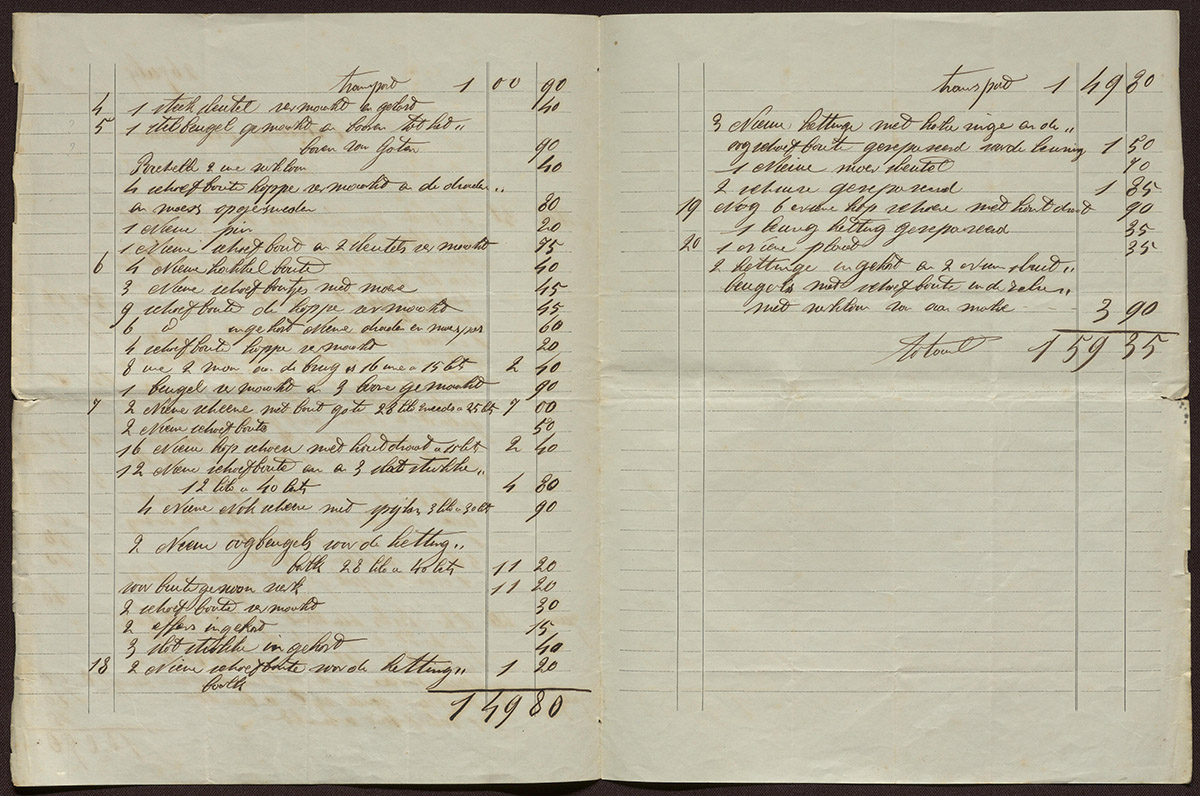 transport 1 00 90
4 1 steek sleutel vermaakt en gehard 40
5 1 stelbeugel gemaakt en boven tot het „
boven van Goten 90
2 ure werkloon 40
4 schoefboute koppe vermaakt en de draden „
en moers opgesneden 80
1 Nieue pin 20
1 Nieue schoefbout en 2 sleutels vermaakt 75
6 4 Nieue hakkel boute 40
3 Nieue schoefboutjes met moere 45
9 schoefboute de koppe vermaakt 45
6 d° ingekort Nieue draden en moers 60
4 schoefboute koppe vermaakt 20
8 ure 2 man aan de brug is 16 ure a 15 cts 2 40
1 beugel vermaakt en 3 bore gemaakt 90
7 2 Nieue scheene met bout gate 28 kilo a 25 cts 7 00
2 Nieue schoefboute 50
16 Nieue kop schoeve met houtdraad a 15 cts 2 40
12 Nieue schoefboute en a 3 slotstukke „
12 kilo a 40 cts 4 80
4 Nieue scheene met spijkers 3 kilo a 30 cts 90
2 Nieue oogbeugels voor de ketting „
balk 28 kilo a 40 cts 11 20
voor buitegewoon werk 11 20
2 schoefboute vermaakt 30
2 ingekort 15
3 slot stukke ingekort 40
18 2 Nieue schoefboute voor de ketting „ 1 20
balk
149 80
transport 1 49 80
3 Nieue kettinge met hake inge en de „
oogschoefboute gerepareerd voor de leuning 1 50
1 Nieue moer sleutel 70
2 gerepareerd 1 85
19 Nog 6 Nieue kop schoeve met hout draad 90
1 leuning ketting gerepareerd 35
20 1 Nieue plaat 35
2 kettinge ingekort en 2 Nieue sluit „
beugels met schoefboute en de „
met werkloon van aan make 3 90
totaal 159 35